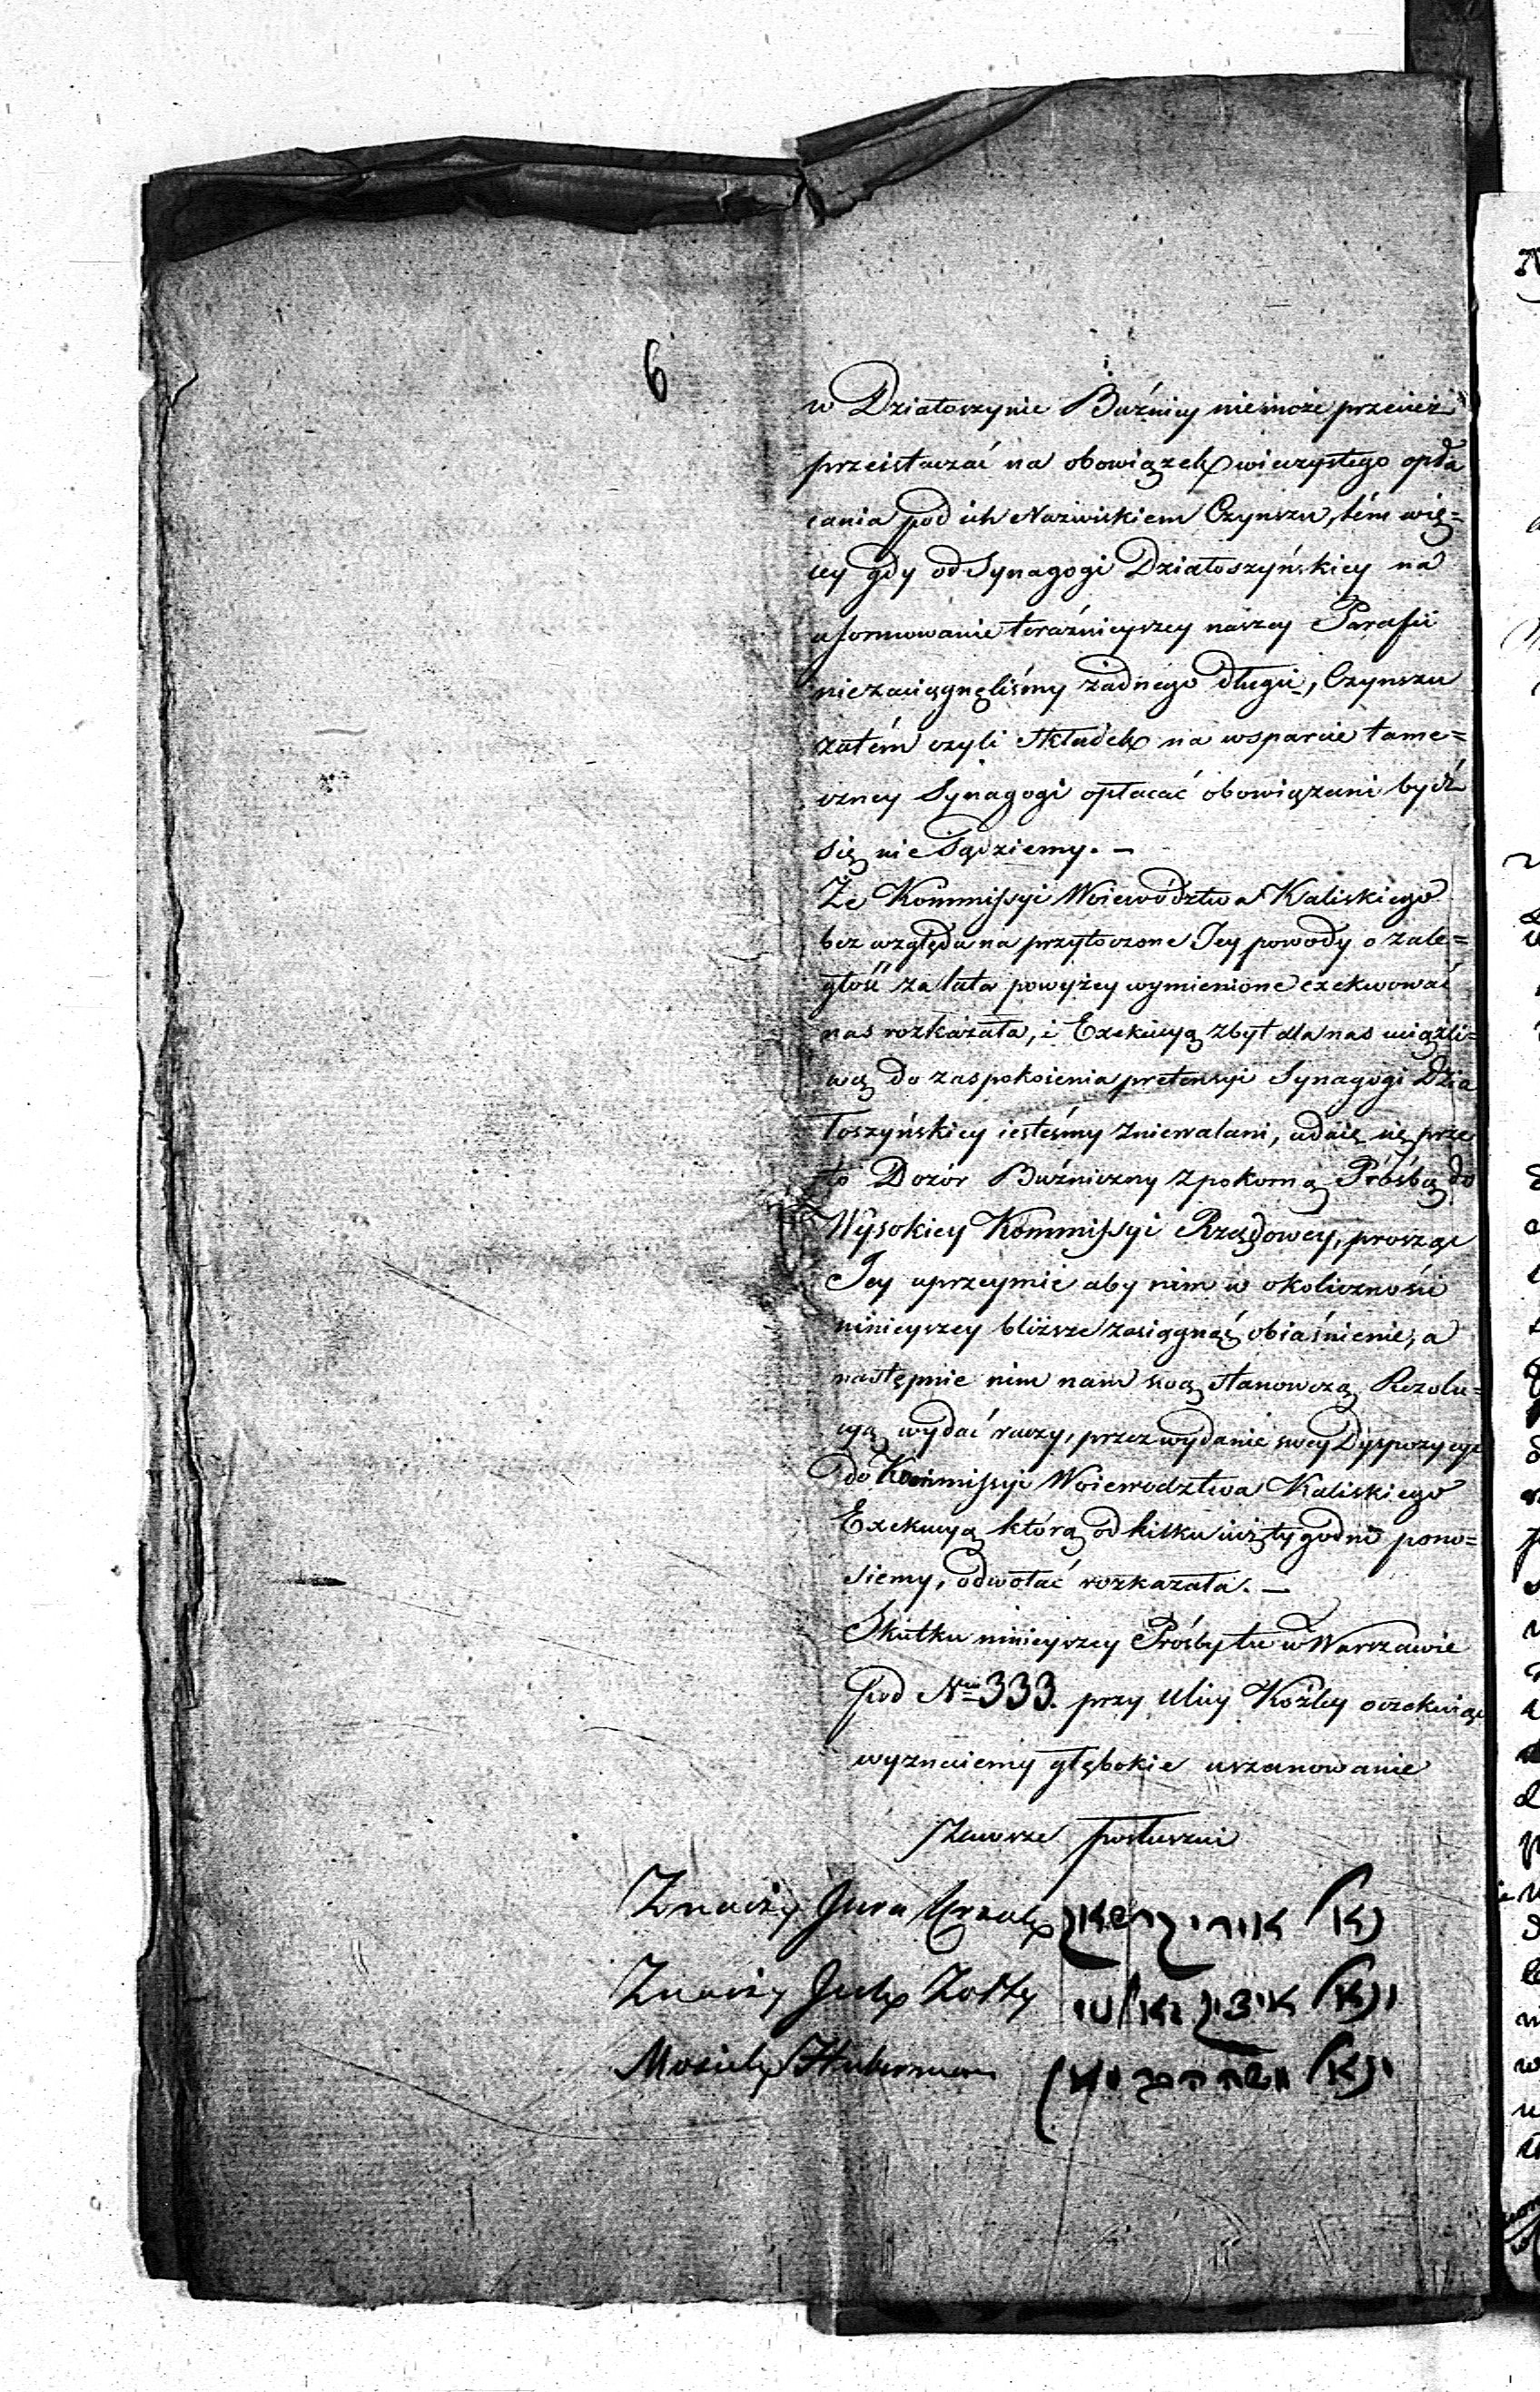 6
w Działoszynie Buźnicy niemoże przecież
przeistaczać na obowiązek wieczystego opła
cania pod ich Nazwiskiem Czynszu, tém wię=
cey gdy od Synagogi Działoszyńskiey na
uformowanie teraźnieyszey naszey Parafii
niezaciągnęliśmy żadnego długu, Czynszu
zatém czyli składek na wsparcie tame=
czney Synagogi opłacać obowiązani bydź
się nie sądziemy. —
Że Kommissyi Woiewództwa Kaliskiego
bez względu na przytoczone Jey powody o zale=
głość za lata powyżey wymienione exekwować
nas rozkazała, i Exekucyą zbyt dla nas uciążli=
wą do zaspokoienia pretensyi Synagogi Dzia
łoszyńskiey iesteśmy zniewalani, udaie się prze
to Dozór Buźniczny z pokorną Prośbą do
Wysokiey Kommissyi Rządowey, prosząc
Jey uprzeymie aby nim w okoliczności
ninieyszey bliższe zasiągnąć obiaśnienie, a
następnie nim nam swą stanowczą Rezolu=
cyą wydać raczy, przez wydanie swey Dyspozycyi
do Kommissyi Woiewodztwa Kaliskiego
Exekucyą którą od kilku iuż tygodni pono=
siemy, odwołać rozkazała. —
Skutku ninieyszey Prośby tu w Warszawie
pod Nrm 333. przy Ulicy Koźley oczekuiąc
wyznaiemy głębokie uszanowanie
Zawsze posłuszni
Znaczy Jura
Znaczy Icek Zołty
Mosiek Huberman